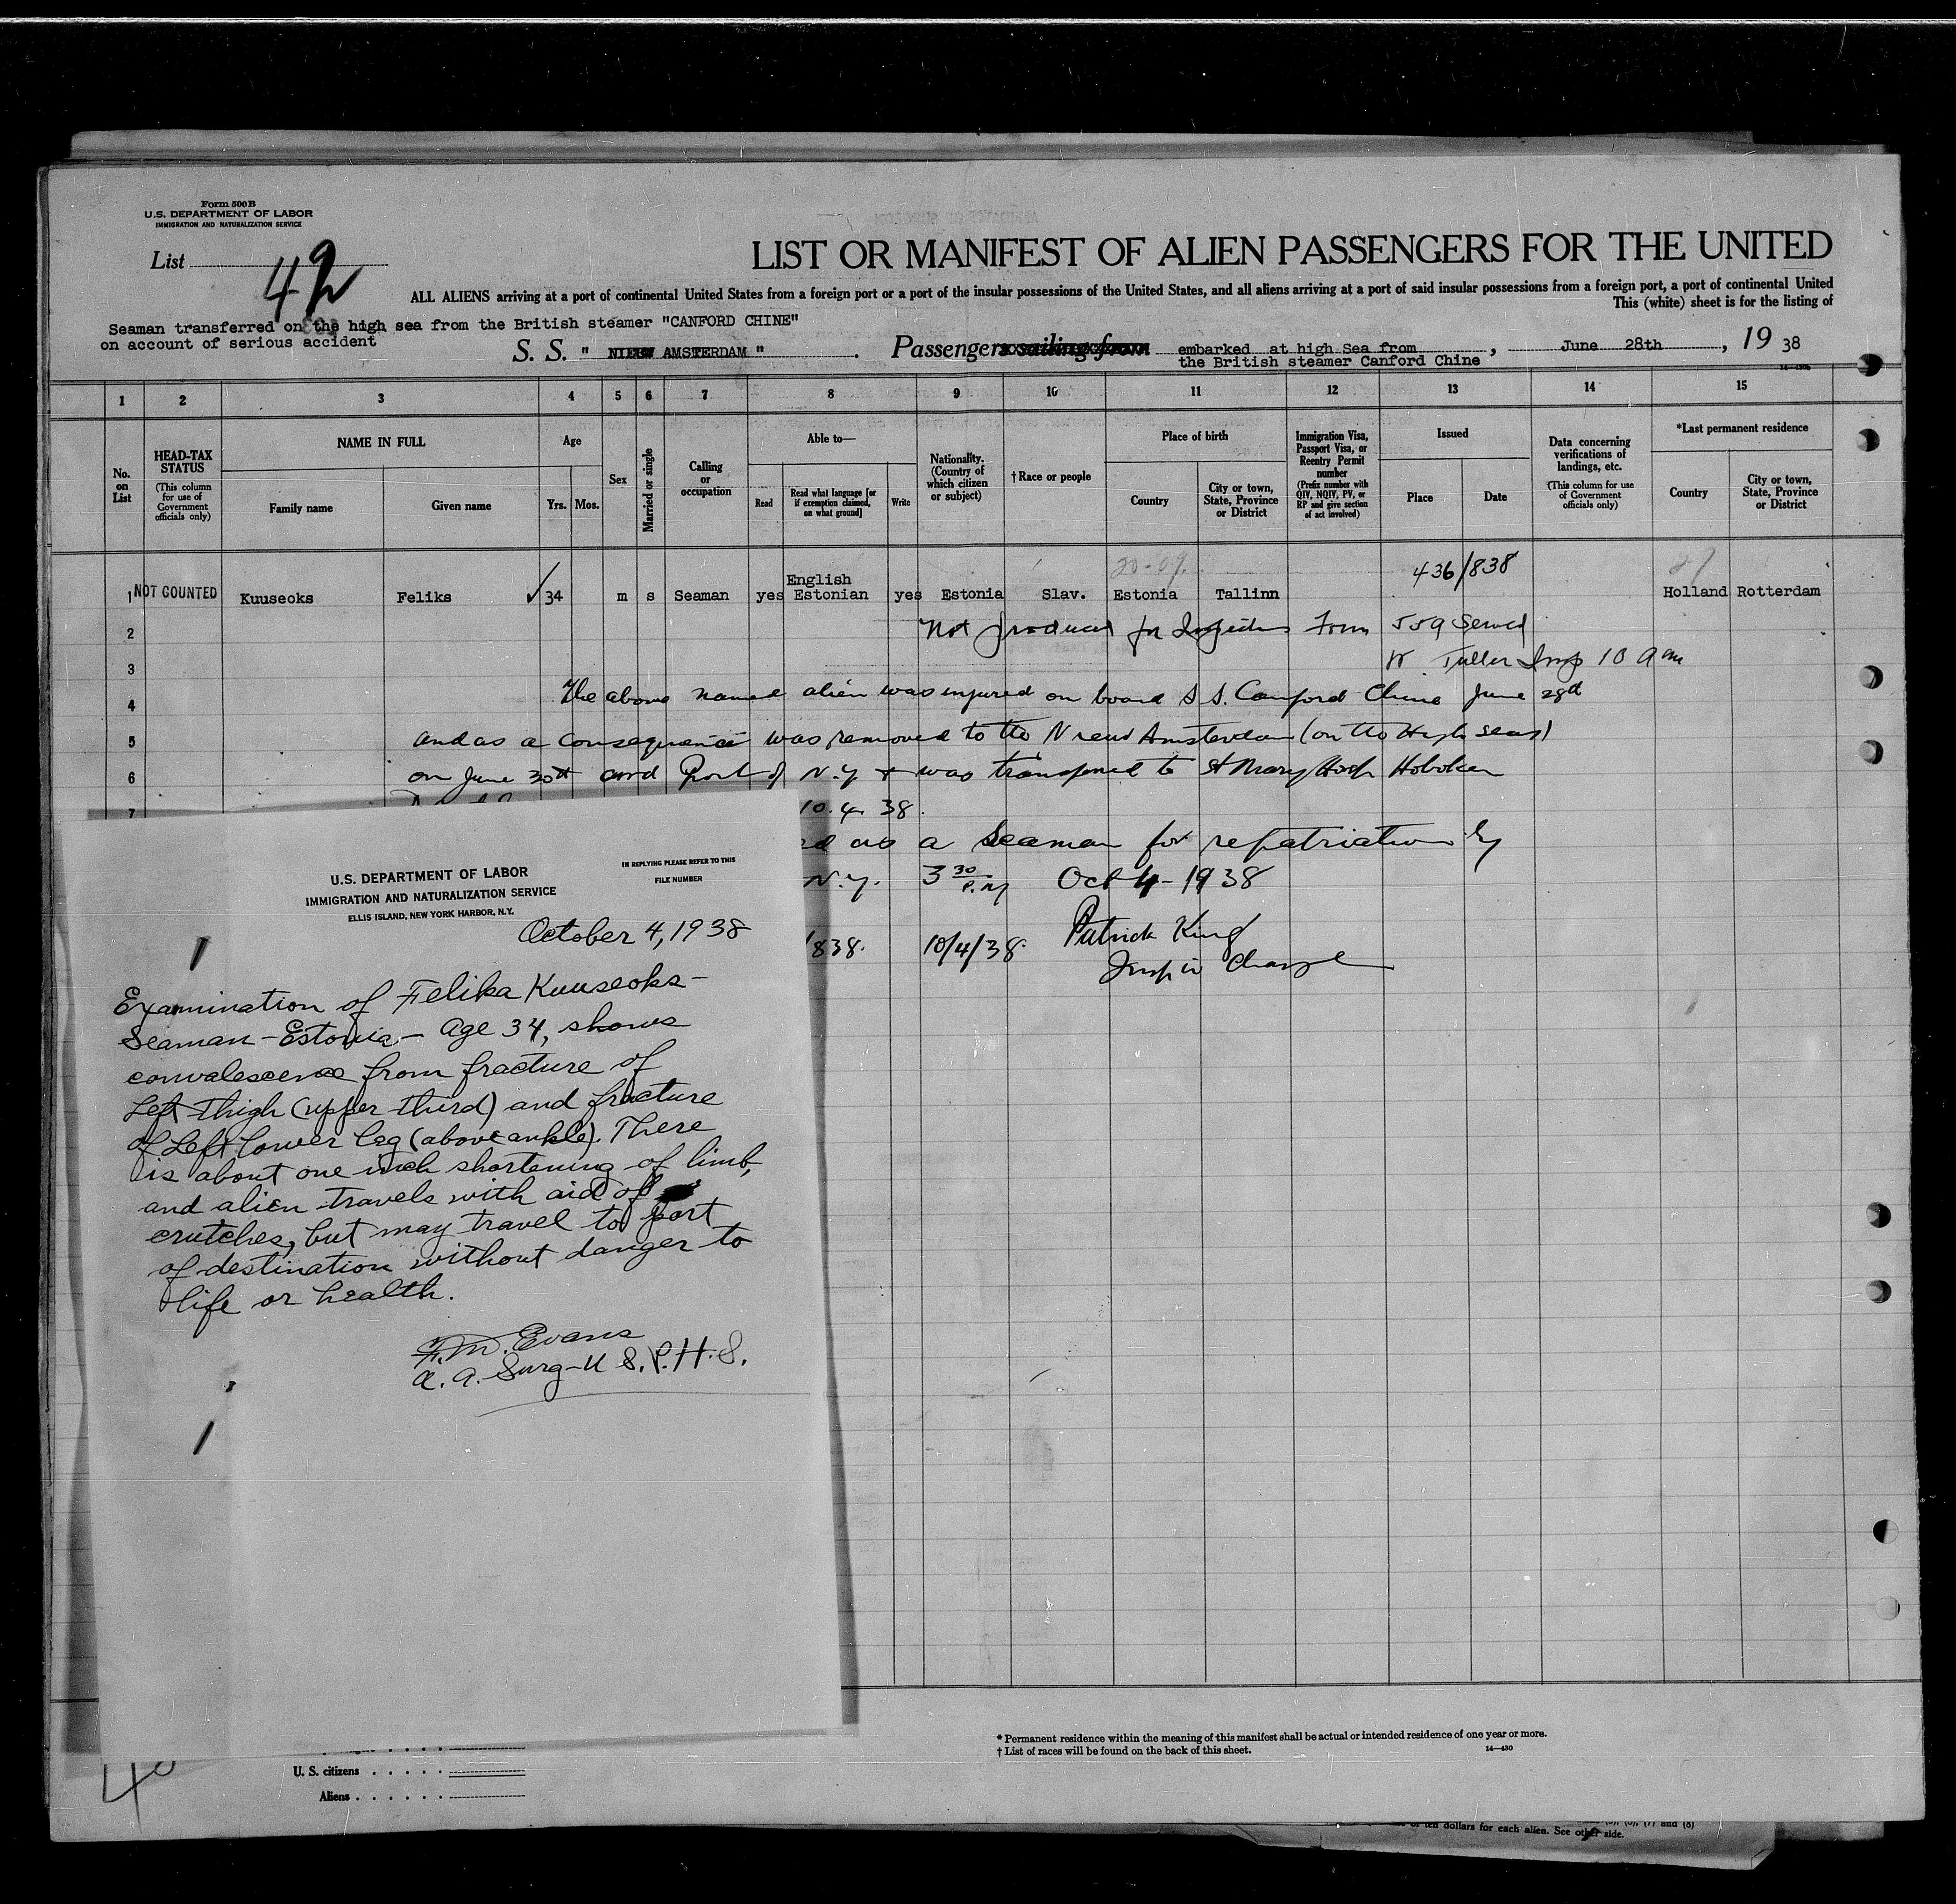 Form 500B
U.S. DEPARTMENT OF LABOR
IMMIGRATION AND NATURALIZATION SERVICE
List 42
LIST OR MANIFEST OF ALIEN PASSENGERS FOR THE UNITED
ALL ALIENS arriving at a port of continental United States from a foreign port or a port of the insular possessions of the United States, and all aliens arriving at a port of said insular possessions from a foreign port, a port of continental United
This (white) sheet is for the listing of
Seaman transferred on the high sea from the British steamer "CANFORD CHINE"
on account of serious accident
S. S. " NIEUW AMSTERDAM " . Passengers sailing from embarked at high Sea from , June 28th , 19 38
the British steamer Canford Chine
1 2 3 4 5 6 7 8 9 10 11 12 13 14 15
No. on List
HEAD-TAX STATUS
(This column for use of Government officials only)
NAME IN FULL
Family name
Given name
Age
Yrs. Mos.
Sex
Married or single
Calling or occupation
Able to—
Read
Read what language [or if exemption claimed, on what ground]
Write
Nationality. (Country of which citizen or subject)
†Race or people
Place of birth
Country
City or town, State, Province or District
Immigration Visa, Passport Visa, or Reentry Permit number
(Prefix number with QIV, NQIV, PV, or RP and give section of act involved)
Issued
Place
Date
Data concerning verifications of landings, etc.
(This column for use of Government officials only)
*Last permanent residence
Country
City or town, State, Province or District
436/838
1 NOT COUNTED Kuuseoks Feliks ✓ 34 m s Seaman yes English Estonian yes Estonia Slav. Estonia Tallinn Holland Rotterdam
2 Not produced for Inspection Form 559 Served
3 Tuller Insp 10 am
4 The above named alien was injured on board S S. Canford Chine June 28th
5 and as a consequence was removed to the Nieuw Amsterdam (on the High seas)
6 on June 30th and Port of N.Y & was transferred to St Mary Hosp Hoboken
7 10.4.38.
as a Seaman for repatriation by
N.Y. 3 30 P.M Oct 4-1938
/838. 10/4/38. Patrick King
Insp in Charge
U.S. DEPARTMENT OF LABOR
IMMIGRATION AND NATURALIZATION SERVICE
ELLIS ISLAND, NEW YORK HARBOR, N.Y.
IN REPLYING PLEASE REFER TO THIS
FILE NUMBER
October 4, 1938
Examination of Felika Kuuseoks-
Seaman-Estonia- age 34, shows
convalescence from fracture of
Left thigh (upper third) and fracture
of Left lower leg (above ankle). There
is about one inch shortening of limb,
and alien travels with aid of
crutches, but may travel to port
of destination without danger to
life or health.
F.M. Evans
a. a. Surg-U.S.P.H.S.
* Permanent residence within the meaning of this manifest shall be actual or intended residence of one year or more.
† List of races will be found on the back of this sheet.
14—430
U. S. citizens
Aliens
ten dollars for each alien. See other side.